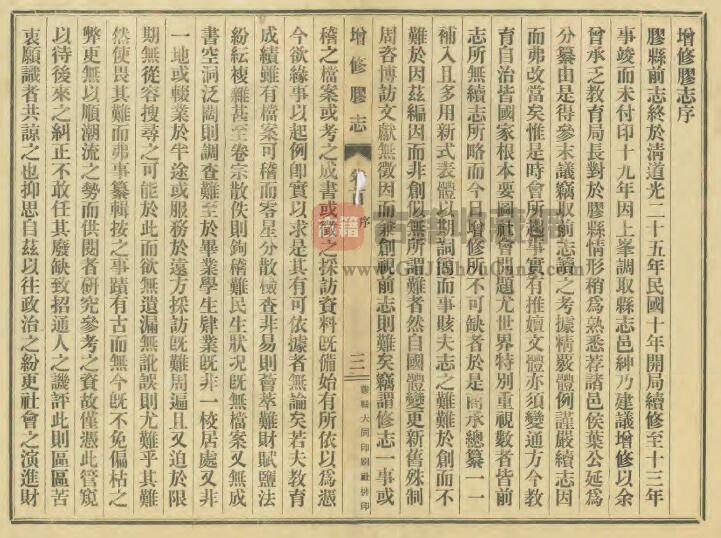 增修膠志序
膠縣前志終於清道光二十五年民國十年開局續修至十三年
事竣而未付印十九年因上峯調取縣志邑紳乃建議增修以余
曾承乏教育局長對於膠縣情形稍為熟悉荐諸邑侯葉公延為
分纂由是得參末議竊取前志讀之考據精覈體例謹嚴續志因
而弗改當矣惟是時會所趨事實有推嬗文體亦須變通方今教
育自治皆國家根本要圖社會問題尤世界特別重視數者皆前
志所無續志所略而今日增修所不可缺者於是商承總纂一一
補入且多用新式表體以期詞簡而事賅夫志之難難於創而不
難於因茲編因而非創似無所謂難者然自國體變更新舊殊制
周咨博訪文獻無徵因而兼創視前志則難矣竊謂修志一事或
增修膠志
序
三
膠縣大同印刷社排印
稽之檔案或考之成書或徵之採訪資料旣備始有所依以為憑
今欲緣事以起例卽實以求是其有可依據者無論矣若夫教育
成績雖有檔案可稽而零星分散檢查非易則薈萃難財賦鹽法
紛紜複雜甚至卷宗散佚則鉤稽難民生狀况旣無檔案又無成
書空洞泛闊則調查難至於畢業學生肄業旣非一校居處又非
一地或輟業於半途或服務於遠方採訪旣難周遍且又迫於限
期無從容搜尋之可能於此而欲無遺漏無訛誤則尤難乎其難
然使畏其難而弗事纂輯按之事蹟有古而無今旣不免偏枯之
弊更無以順潮流之勢而供閱者研究參考之資故僅憑此管窺
以待後來之糾正不敢任其廢缺致招通人之譏評此則區區苦
衷願識者共諒之也抑思自茲以往政治之紛更社會之演進財
古籍收藏網
www.GuJiShouCang.com